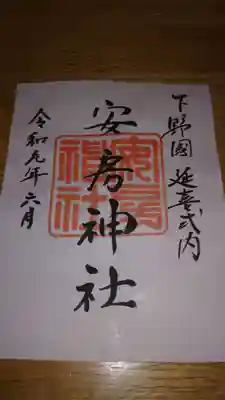 下野國 延喜式内
安房神社
令和元年六月